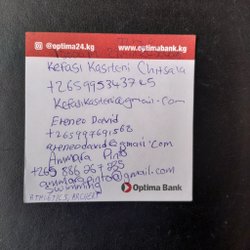 @optima24.kg www.optimabank.kg
Kefasi Kasiteni Chitsala
+265995343765
Kefasikasiteni@gmail.com
Ereneo David
+265997691568
ereneodavid@gmail.com
Ammara Pinto
+265 886 267 235
ammarapinto@gmail.com
Swimming
ATHLETICS, ARCHERY
Optima Bank